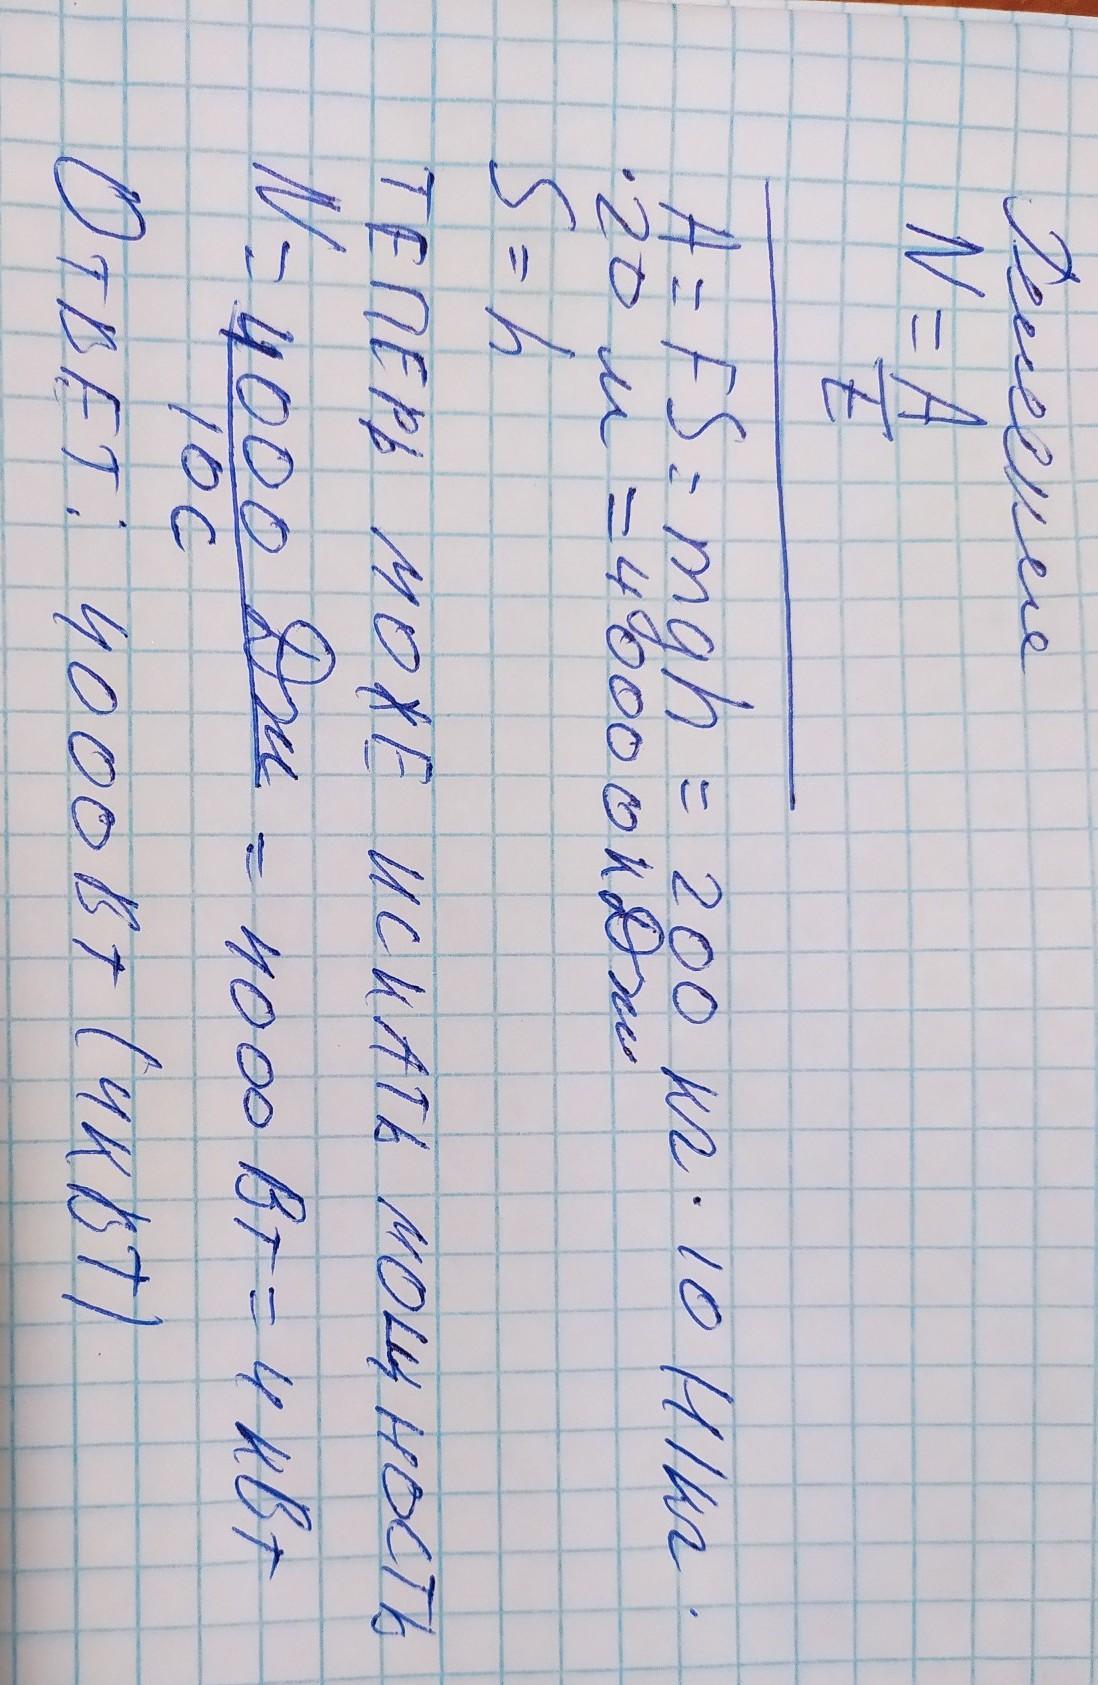 Решение
N = A
t
A = FS = mgh = 200 кг · 10 Н/кг ·
· 20 м = 40000 кДж
S = h
ТЕПЕРЬ МОЖЕ ИСКАТЬ МОЩНОСТЬ
N = 4000 Дж = 4000 Вт = 4 кВт
10 с
ОТВЕТ: 4000Вт (4кВт)